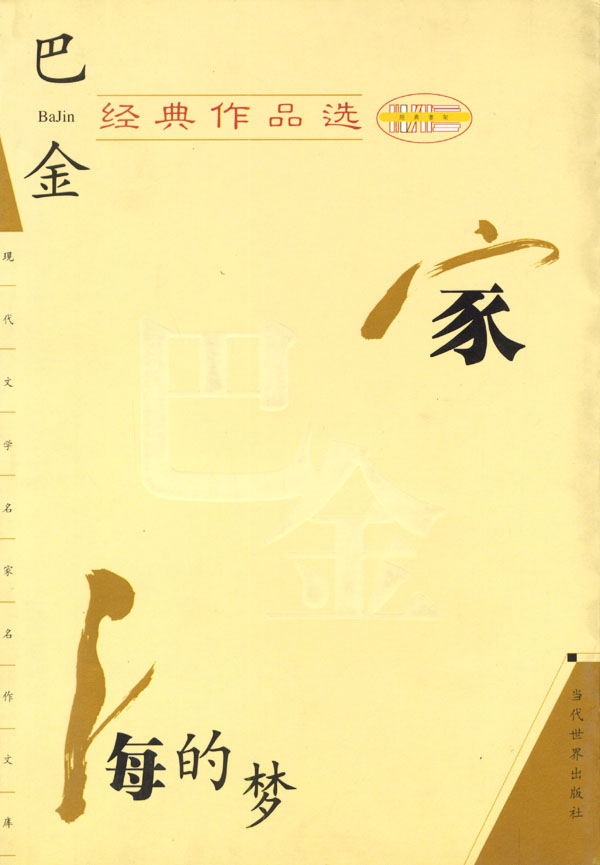 巴金
BaJin
经典作品选
经典书架
家
海的梦
巴金
现代文学名家名作文库
当代世界出版社